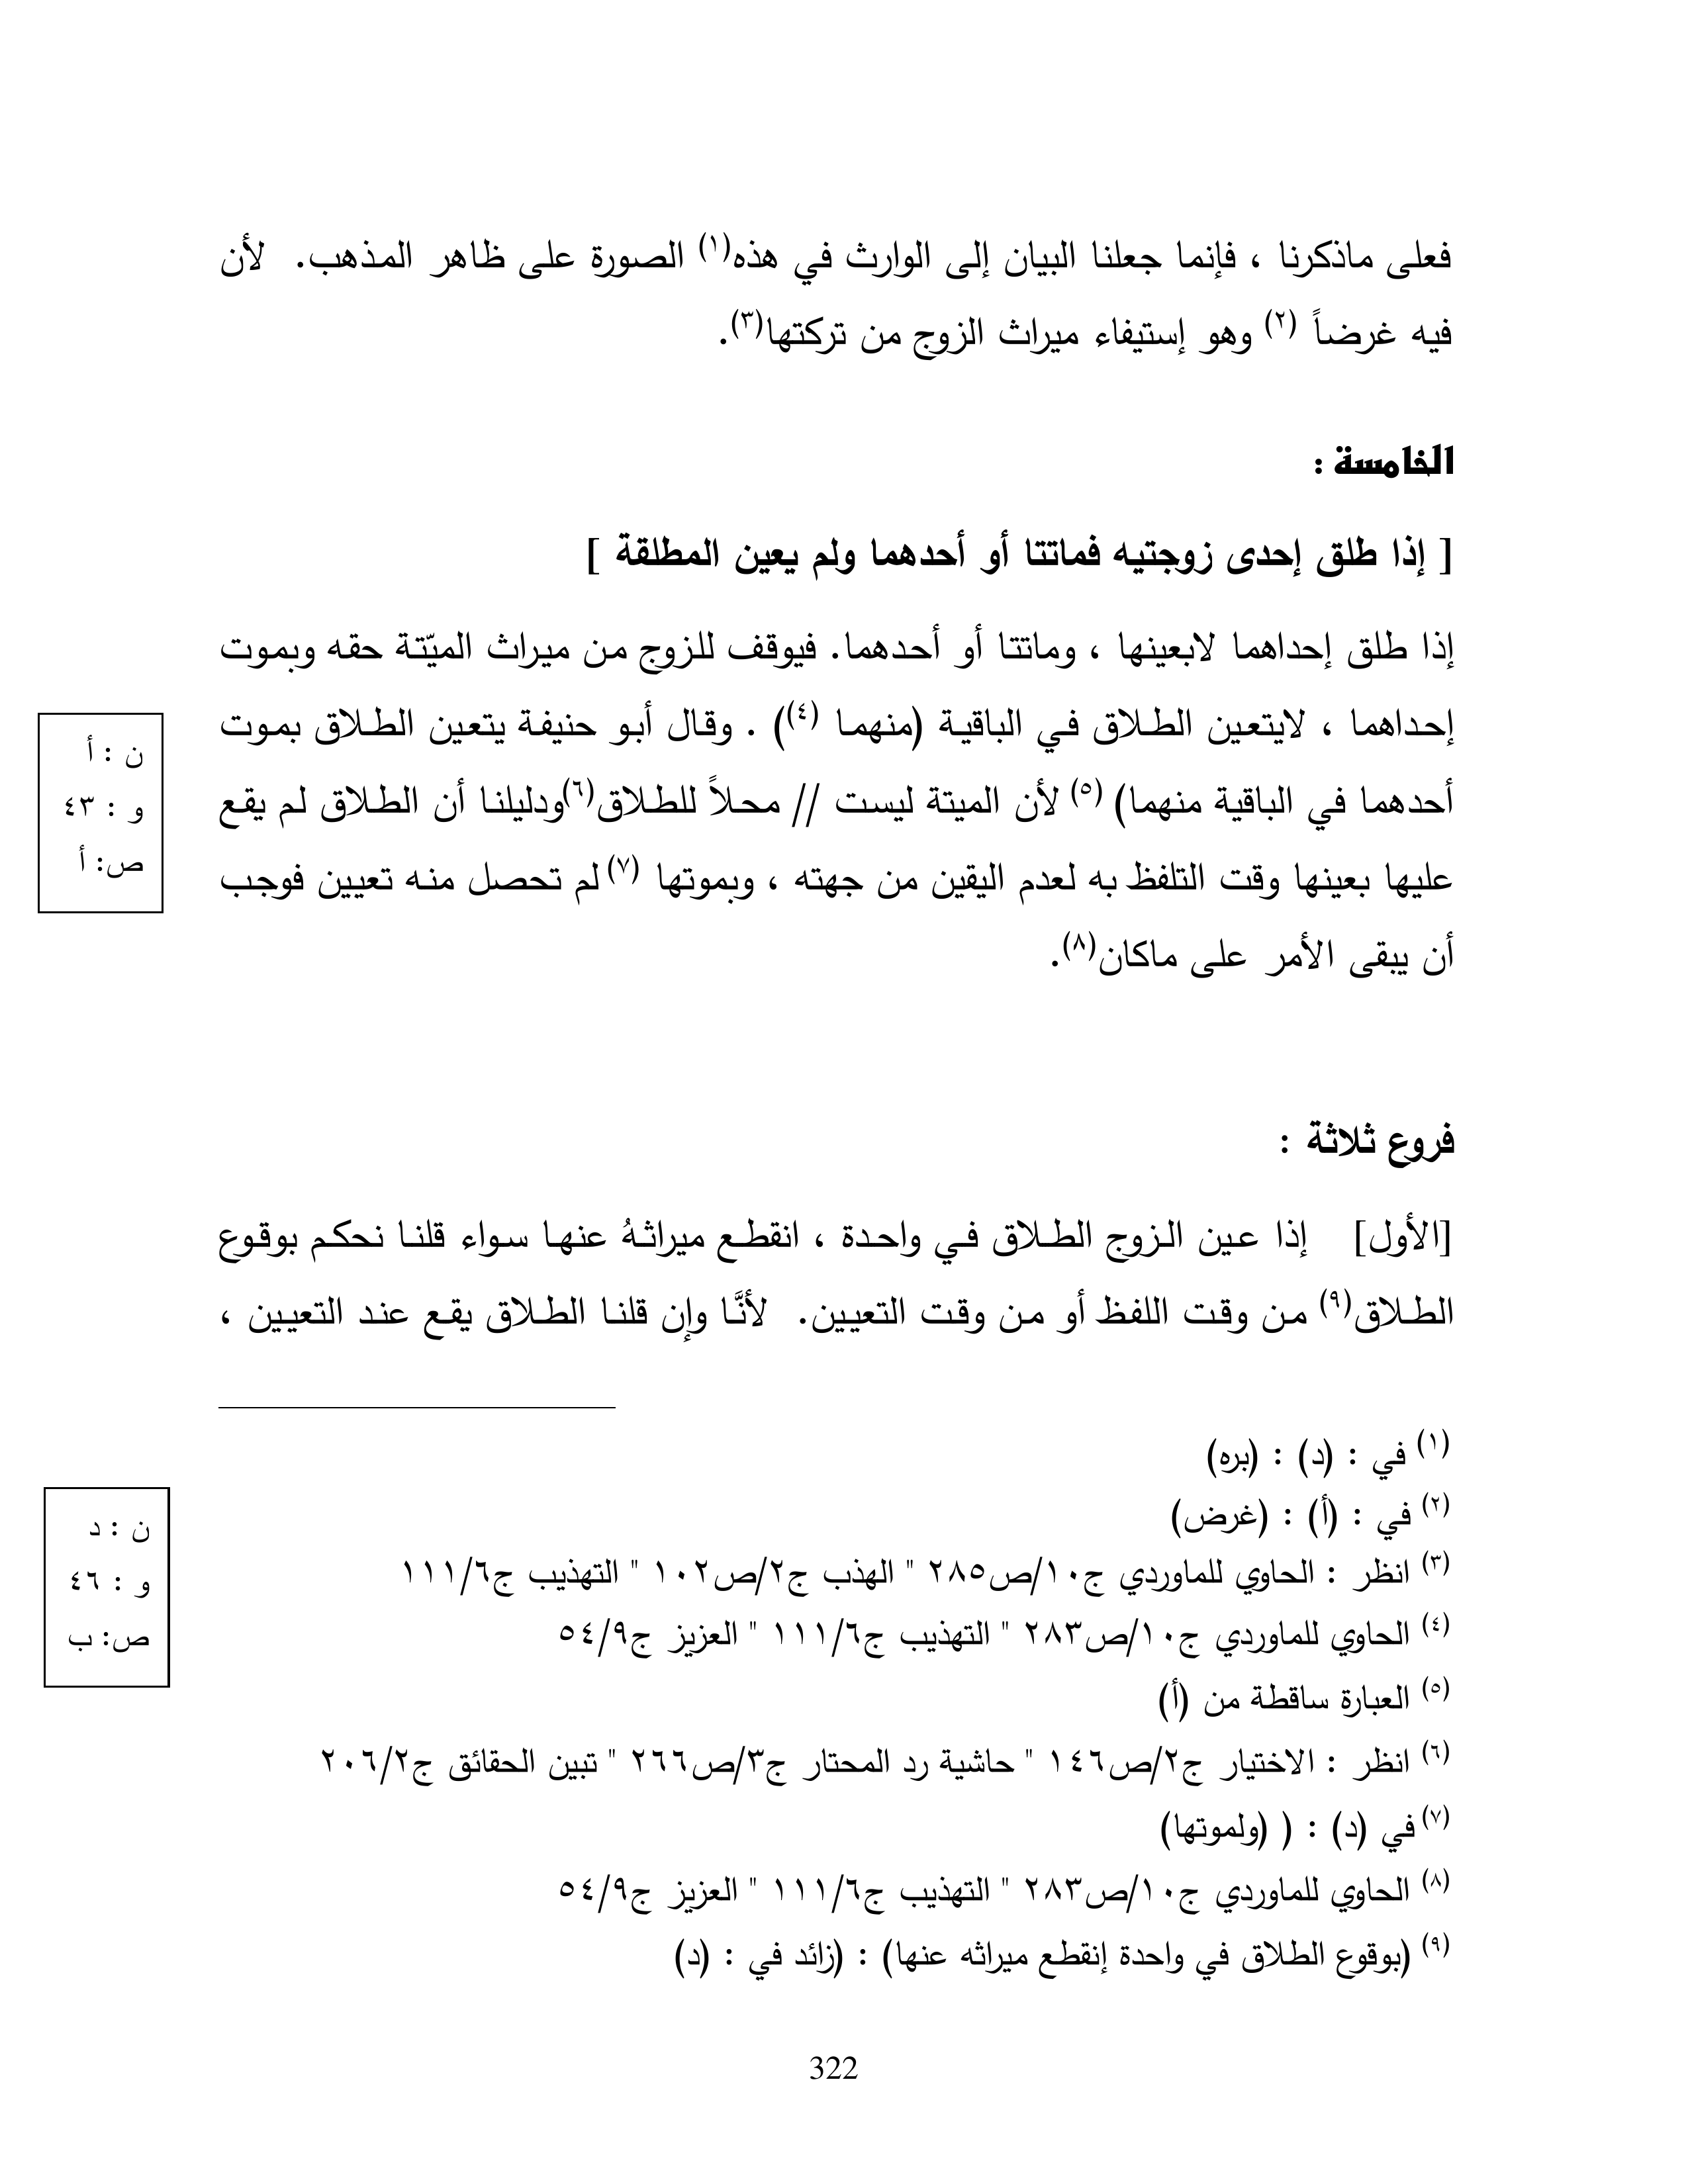 فعلى ماذكرنا ، فإنما جعلنا البيان إلى الوارث في هذه(١) الصورة على ظاهر المذهب. لأن
فيه غرضاً (٢) وهو إستيفاء ميراث الزوج من تركتها(٣).
الخامسة :
[ إذا طلق إحدى زوجتيه فماتتا أو أحدهما ولم يعين المطلقة ]
إذا طلق إحداهما لابعينها ، وماتتا أو أحدهما. فيوقف للزوج من ميراث الميّتة حقه وبموت
إحداهما ، لايتعين الطلاق في الباقية (منهما (٤)) . وقال أبو حنيفة يتعين الطلاق بموت
أحدهما في الباقية منهما) (٥) لأن الميتة ليست // محلاً للطلاق(٦)ودليلنا أن الطلاق لم يقع
عليها بعينها وقت التلفظ به لعدم اليقين من جهته ، وبموتها (٧) لم تحصل منه تعيين فوجب
أن يبقى الأمر على ماكان(٨).
ن : أ
و : ٤٣
ص: أ
فروع ثلاثة :
[الأول] إذا عين الزوج الطلاق في واحدة ، انقطع ميراثهُ عنها سواء قلنا نحكم بوقوع
الطلاق(٩) من وقت اللفظ أو من وقت التعيين. لأنَّا وإن قلنا الطلاق يقع عند التعيين ،
(١) في : (د) : (بره)
(٢) في : (أ) : (غرض)
(٣) انظر : الحاوي للماوردي ج١٠/ص٢٨٥ " الهذب ج٢/ص١٠٢ " التهذيب ج٦/١١١
(٤) الحاوي للماوردي ج١٠/ص٢٨٣ " التهذيب ج٦/١١١ " العزيز ج٩/٥٤
(٥) العبارة ساقطة من (أ)
(٦) انظر : الاختيار ج٢/ص١٤٦ " حاشية رد المحتار ج٣/ص٢٦٦ " تبين الحقائق ج٢/٢٠٦
(٧) في (د) : ( (ولموتها)
(٨) الحاوي للماوردي ج١٠/ص٢٨٣ " التهذيب ج٦/١١١ " العزيز ج٩/٥٤
(٩) (بوقوع الطلاق في واحدة إنقطع ميراثه عنها) : (زائد في : (د)
ن : د
و : ٤٦
ص: ب
322